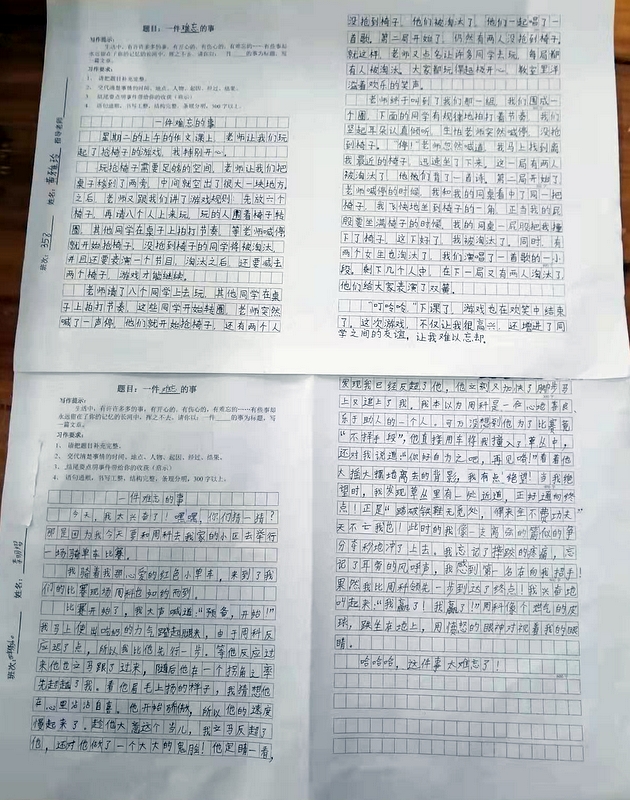 题目：一件难忘的事
写作提示：
生活中，有许许多多的事，有开心的，有伤心的，有难忘的……有些事却
永远留在了你的记忆的长河中，挥之不去。请你以：一件____的事为标题，写
一篇文章。
写作要求：
1. 请把题目补充完整。
2. 交代清楚事情的时间、地点、人物、起因、经过、结果。
3. 结尾要点明事件带给你的收获（启示）
4. 语句通顺，书写工整，结构完整，条理分明，300字以上。
指导老师
姓名：
班次：358
一件难忘的事
星期二的上午的作文课上，老师让我们玩
起了抢椅子的游戏，我特别开心。
玩抢椅子需要足够的空间，老师让我们把
桌子移到了两旁，中间就空出了很大一块地方，
之后，老师又跟我们讲了游戏规则：先放六个
椅子，再请八个人上来玩，玩的人围着椅子转
圈，其他同学在桌子上拍打节奏，等老师喊停
就开始抢椅子，没抢到椅子的同学将被淘汰，
并且还要表演一个节目，淘汰之后，还要减去
两个椅子，游戏才能继续。
老师请了八个同学上去玩，其他同学在桌
子上拍打节奏，这些同学开始转圈，老师突然
喊了一声停，他们就开始抢椅子，还有两个人
没抢到椅子，他们被淘汰了，他们一起唱了一
首歌，第二局开始了，仍然有两人没抢到椅子，
就这样，老师又点名让许多同学去玩，每局都
有人被淘汰，大家都玩得超级开心，教室里洋
溢着欢乐的笑声。
老师终于叫到了我们那一组，我们围成一
个圈，下面的同学有规律地拍打着节奏，我们
竖起耳朵认真倾听，生怕老师突然喊停，没抢
到椅子。“停！”老师忽然喊道，我马上找到离
我最近的椅子，迅速坐了下来，这一局有两人
被淘汰了，他俩们背了一首诗，第二局开始了，
老师喊停的时候，我和我的同桌看中了同一把
椅子，我飞快地坐到椅子的一角，正当我的屁
股要坐满椅子的时候，我的同桌一屁股把我撞
下了椅子，这下好了，我被淘汰了，同时，有
两个女生也淘汰了，我们演唱了一首歌的一小
段，剩下几个人中，在下一局又有两人淘汰了，
他们给大家表演了双簧。
“叮哈哈”下课了，游戏也在欢笑中结束
了，这次游戏，不仅让我很高兴，还增进了同
学之间的友谊，让我难以忘却。
题目：一件难忘的事
写作提示：
生活中，有许许多多的事，有开心的，有伤心的，有难忘的……有些事却
永远留在了你的记忆的长河中，挥之不去。请你以：一件____的事为标题，写
一篇文章。
写作要求：
1. 请把题目补充完整。
2. 交代清楚事情的时间、地点、人物、起因、经过、结果。
3. 结尾要点明事件带给你的收获（启示）
4. 语句通顺，书写工整，结构完整，条理分明，300字以上。
姓名：
班次：
一件难忘的事
今天，我太兴奋了！嘿嘿，你们猜一猜？
那是因为我今天要和周科去我家的小区去举行
一场骑单车比赛。
我骑着我那心爱的红色小单车，来到了我
们的比赛现场周科也如约而到。
比赛开始了，我大声喊道：“预备，开始！”
我马上使出吃奶的力气蹬起脚来，由于周科反
应迟了点，所以我比他先行一步，等他反应过
来他也立马跟了过来，随后他在一个拐角之率
先赶超了我。看他眉毛上扬的样子，我猜想他
在心里沾沾自喜。他开始骄傲，所以他的速度
慢起来了。趁他大意这个当儿，我立马反超了
他，还对他做了一个大大的鬼脸！他定睛一看，
发现我已经反超了他，他立刻又加快了脚步马
上又追上了我，我本以为周科是一个心地善良，
乐于助人的一个人，可万没想到他为了比赛竟
“不择手段”，他直接用车停我撞入了草丛中，
还对我说道：“你好自为之吧，再见唷！”看着他
大摇大摆地离去的背影，我有点绝望！当我绝
望时，我发现草丛里有一处近道，正好通向终
点！正是“踏破铁鞋无觅处，得来全不费功夫”
天不亡我也！此时的我像一支离弦的箭似的争
分夺秒地冲了上去，我忘记了摔跌的疼痛，忘
记了耳旁的风呼声，我感到第一名在向我招手！
果然我比周科领先一步到达了终点！我兴奋地
叫起来：“我赢了！我赢了！”周科像个泄气的皮
球，跌坐在地上，用愤怒的眼神对视着我的眼
睛。
哈哈哈，这件事太难忘了！